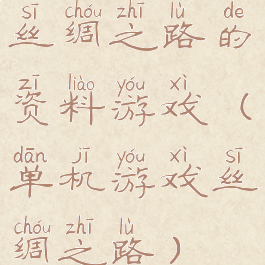 sī chóu zhī lù de
丝绸之路的
zī liào yóu xì
资料游戏（
dān jī yóu xì sī
单机游戏丝
chóu zhī lù
绸之路）